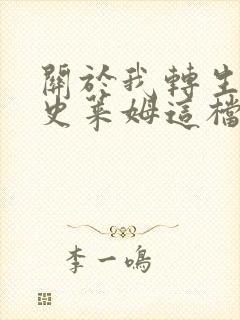 關於我轉生
史萊姆這檔
李一鳴